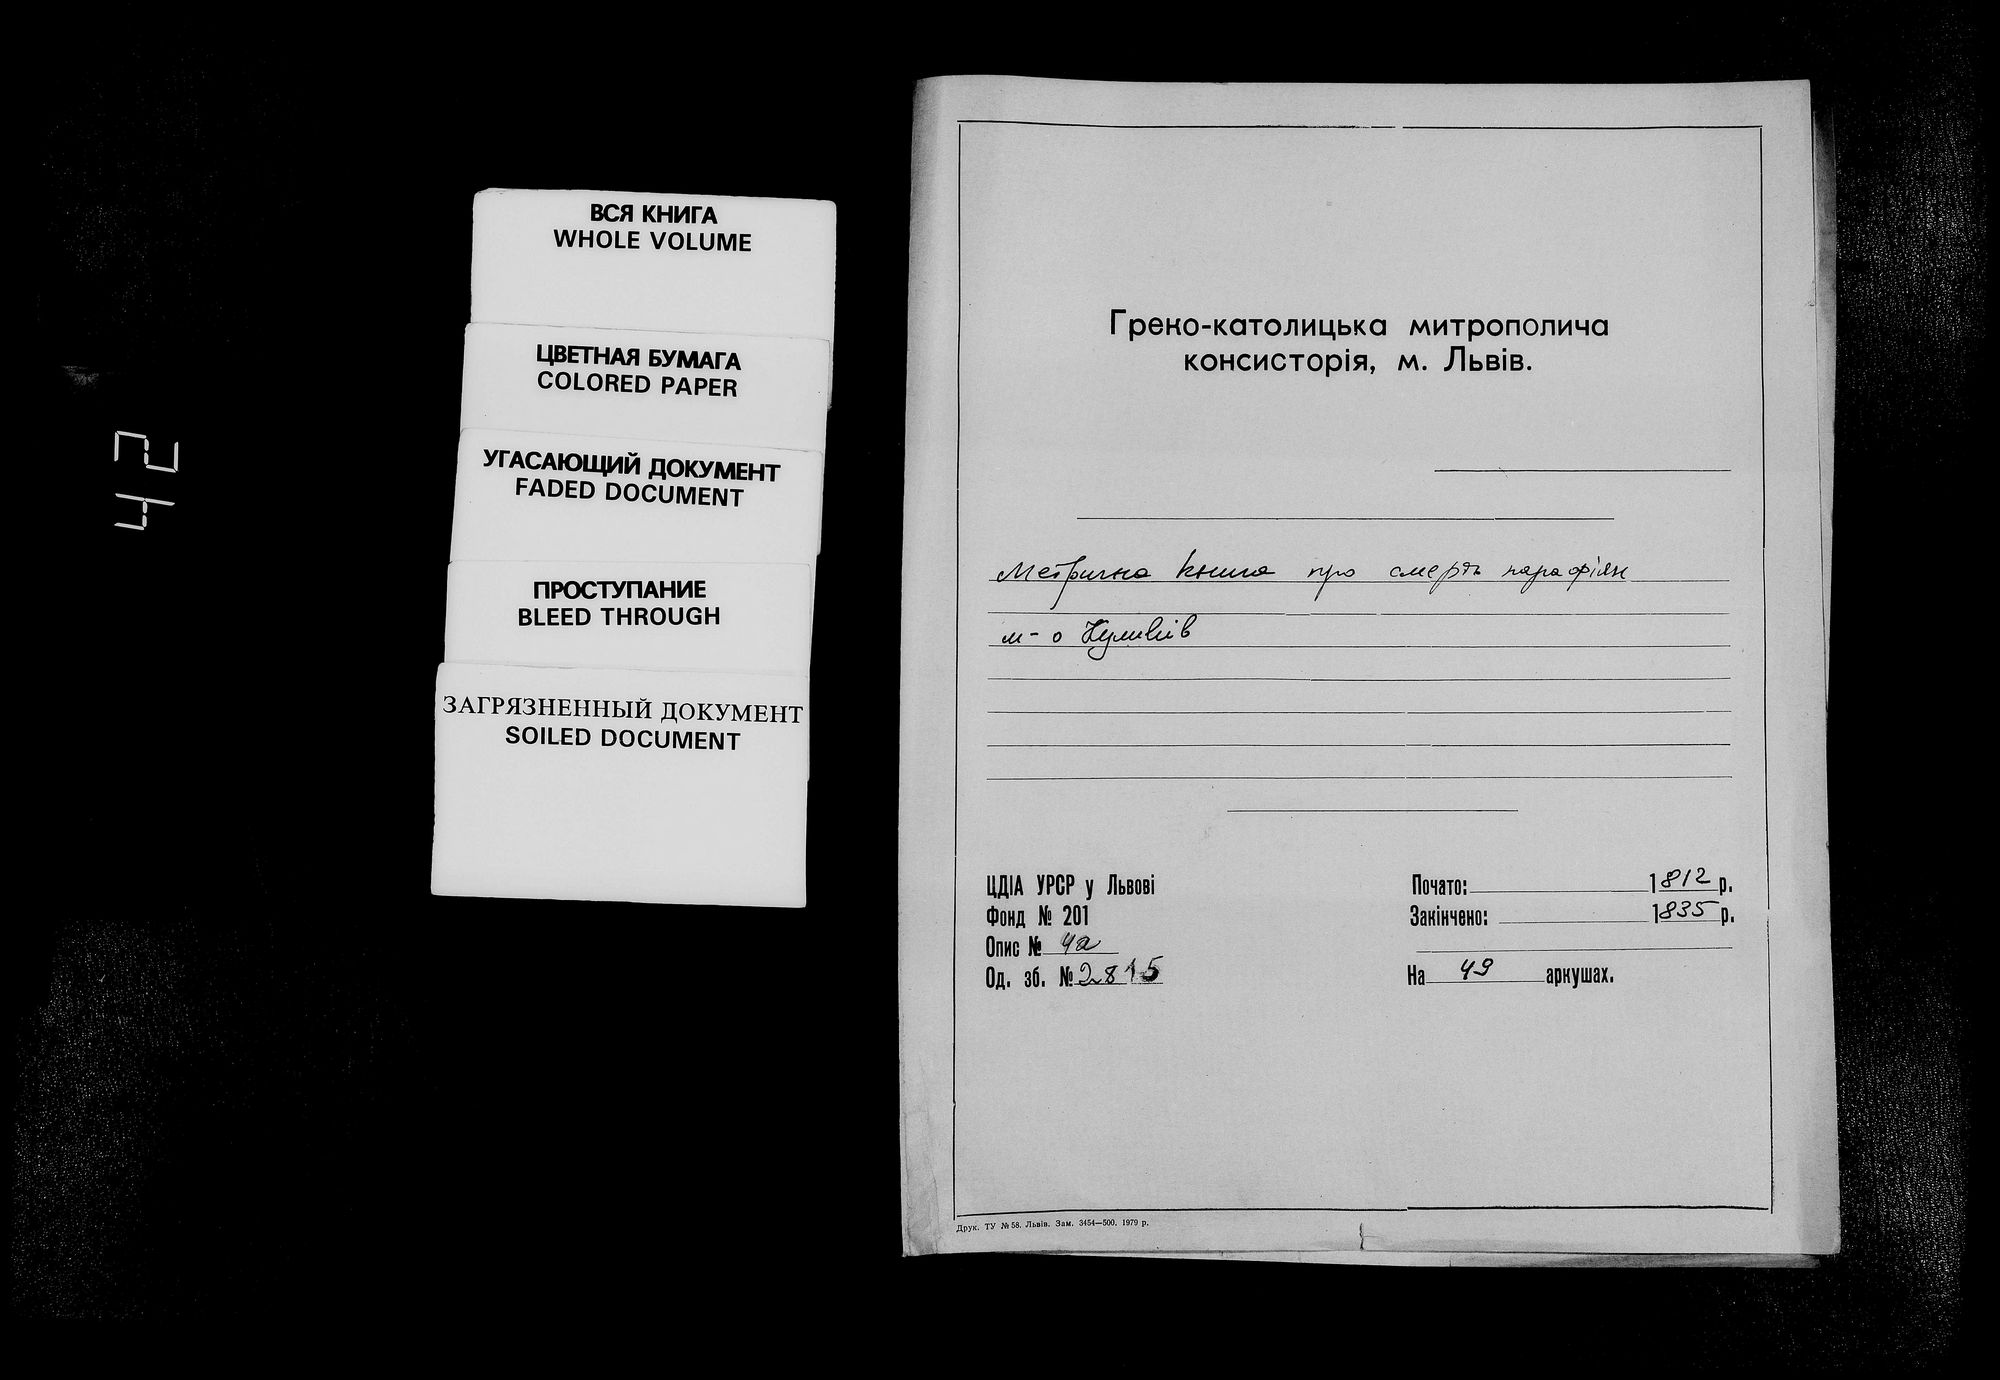 ВСЯ КНИГА
WHOLE VOLUME
ЦВЕТНАЯ БУМАГА
COLORED PAPER
УГАСАЮЩИЙ ДОКУМЕНТ
FADED DOCUMENT
ПРОСТУПАНИЕ
BLEED THROUGH
ЗАГРЯЗНЕННЫЙ ДОКУМЕНТ
SOILED DOCUMENT
42
Греко-католицька митрополича
консисторія, м. Львів.
Метрична книга про смерть парафіян
м-о Куликів
ЦДІА УРСР у Львові
Фонд № 201
Опис № 4а
Од. зб. № 2815
Почато: 1812 р.
Закінчено: 1835 р.
На 49 аркушах.
Друк. ТУ № 58. Львів. Зам. 3454—500. 1979 р.